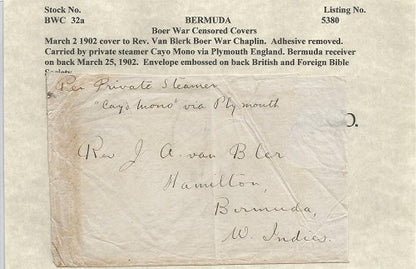 Stock No. BERMUDA Listing No.
BWC 32a 5380
Boer War Censored Covers
March 2 1902 cover to Rev. Van Blerk Boer War Chaplin. Adhesive removed.
Carried by private steamer Cayo Mono via Plymouth England. Bermuda receiver
on back March 25, 1902. Envelope embossed on back British and Foreign Bible
Society
Per Private Steamer
"Cayo Mono" via Plymouth
Rev J A. van Bler
Hamilton,
Bermuda,
W. Indies.